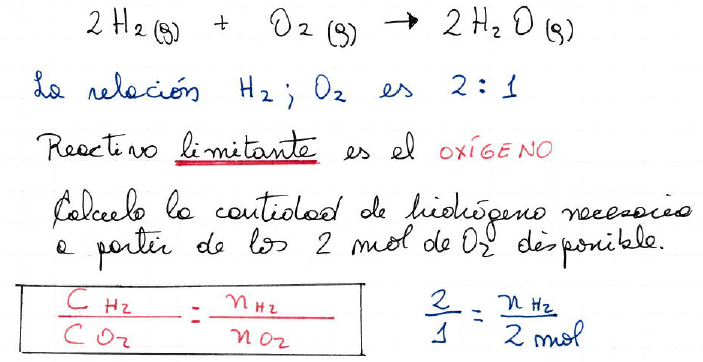 2 H₂(g) + O₂(g) → 2 H₂O(g)
La relación H₂; O₂ es 2:1
Reactivo limitante es el OXÍGENO
Calculo la cantidad de hidrógeno necesaria
a partir de los 2 mol de O₂ disponible.
C H₂ / C O₂ = n H₂ / n O₂    2/1 = n H₂ / 2 mol